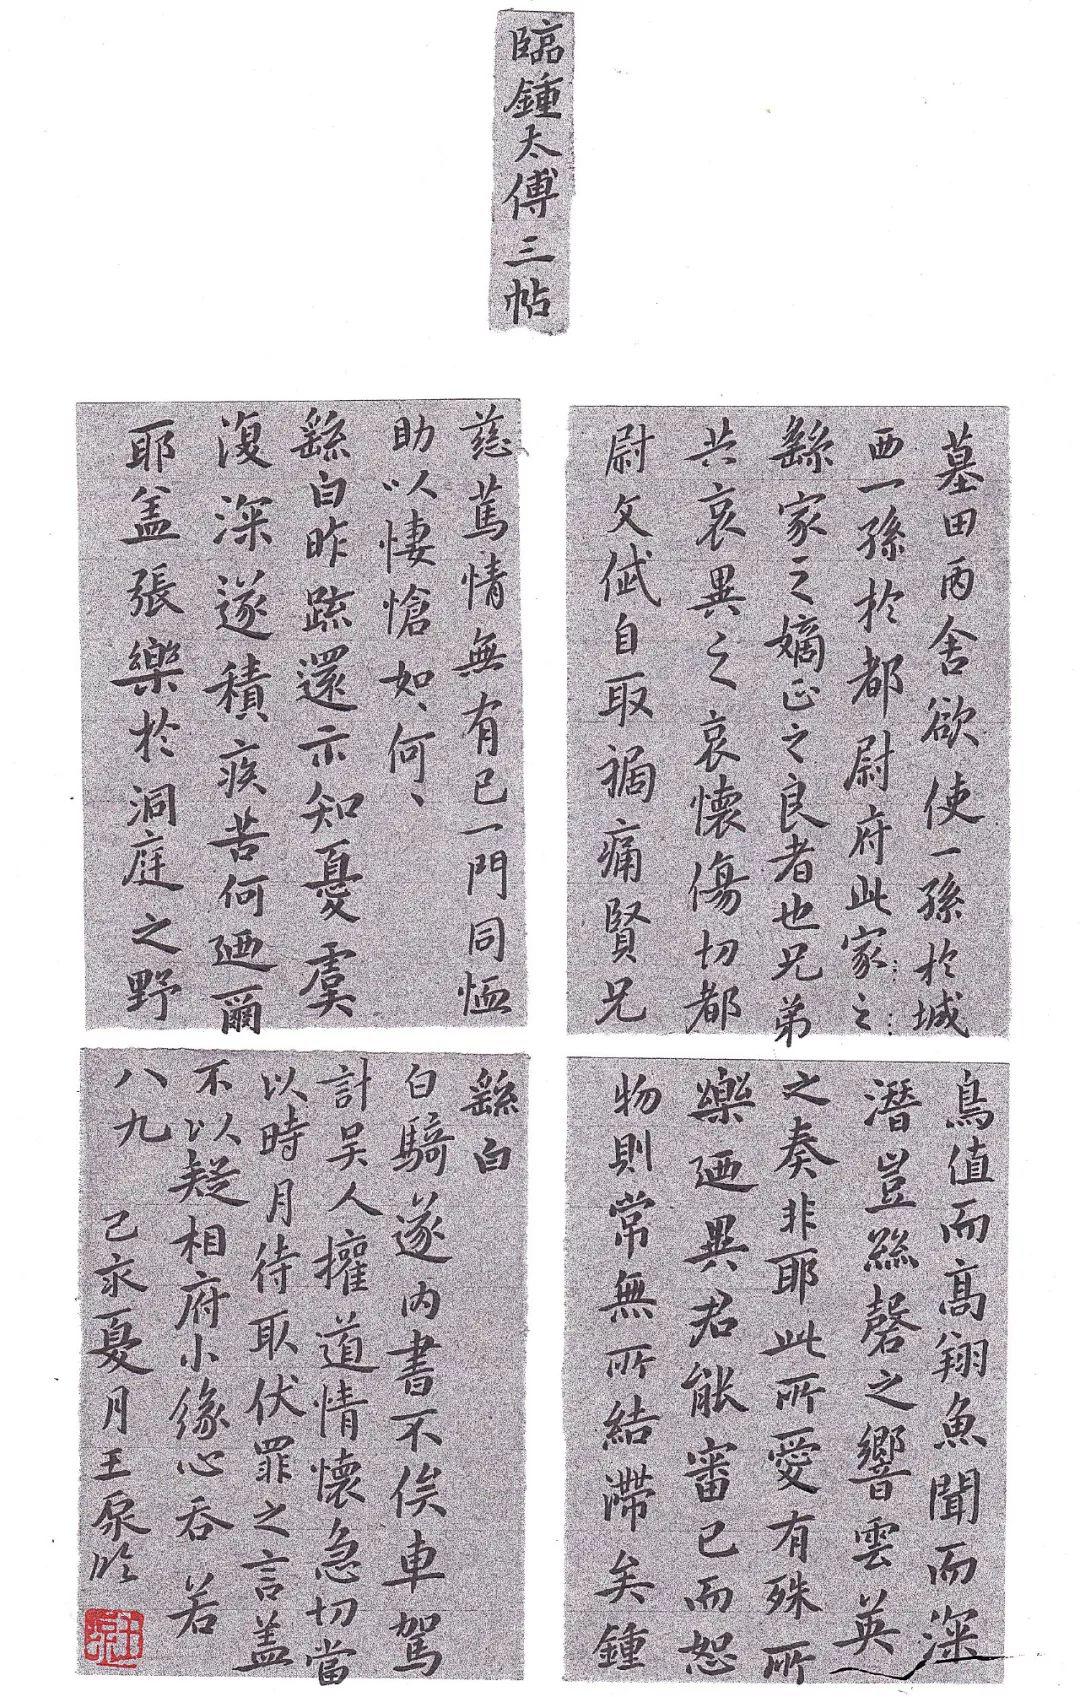 臨鍾太傅三帖
墓田丙舍欲使一孫於城
西一孫於都尉府此家之
繇家之嫡正之良者也兄弟
共哀異之哀懷傷切都
尉文岱自取禍痛賢兄
慈篤情無有已一門同恤
助以悽愴如、何、
繇白昨疏還示知憂虞
復深遂積疾苦何迺爾
耶盖張樂於洞庭之野
鳥值而高翔魚聞而深
潛豈絲磬之響雲英
之奏非耶此所愛有殊所
樂迺異君能審己而恕
物則常無所結滯矣鍾
繇白
白騎遂內書不俟車駕
計吳人權道情懷急切當
以時月待取伏罪之言盖
不以疑相府小緣心吞若
八九
己亥夏月王泉臨